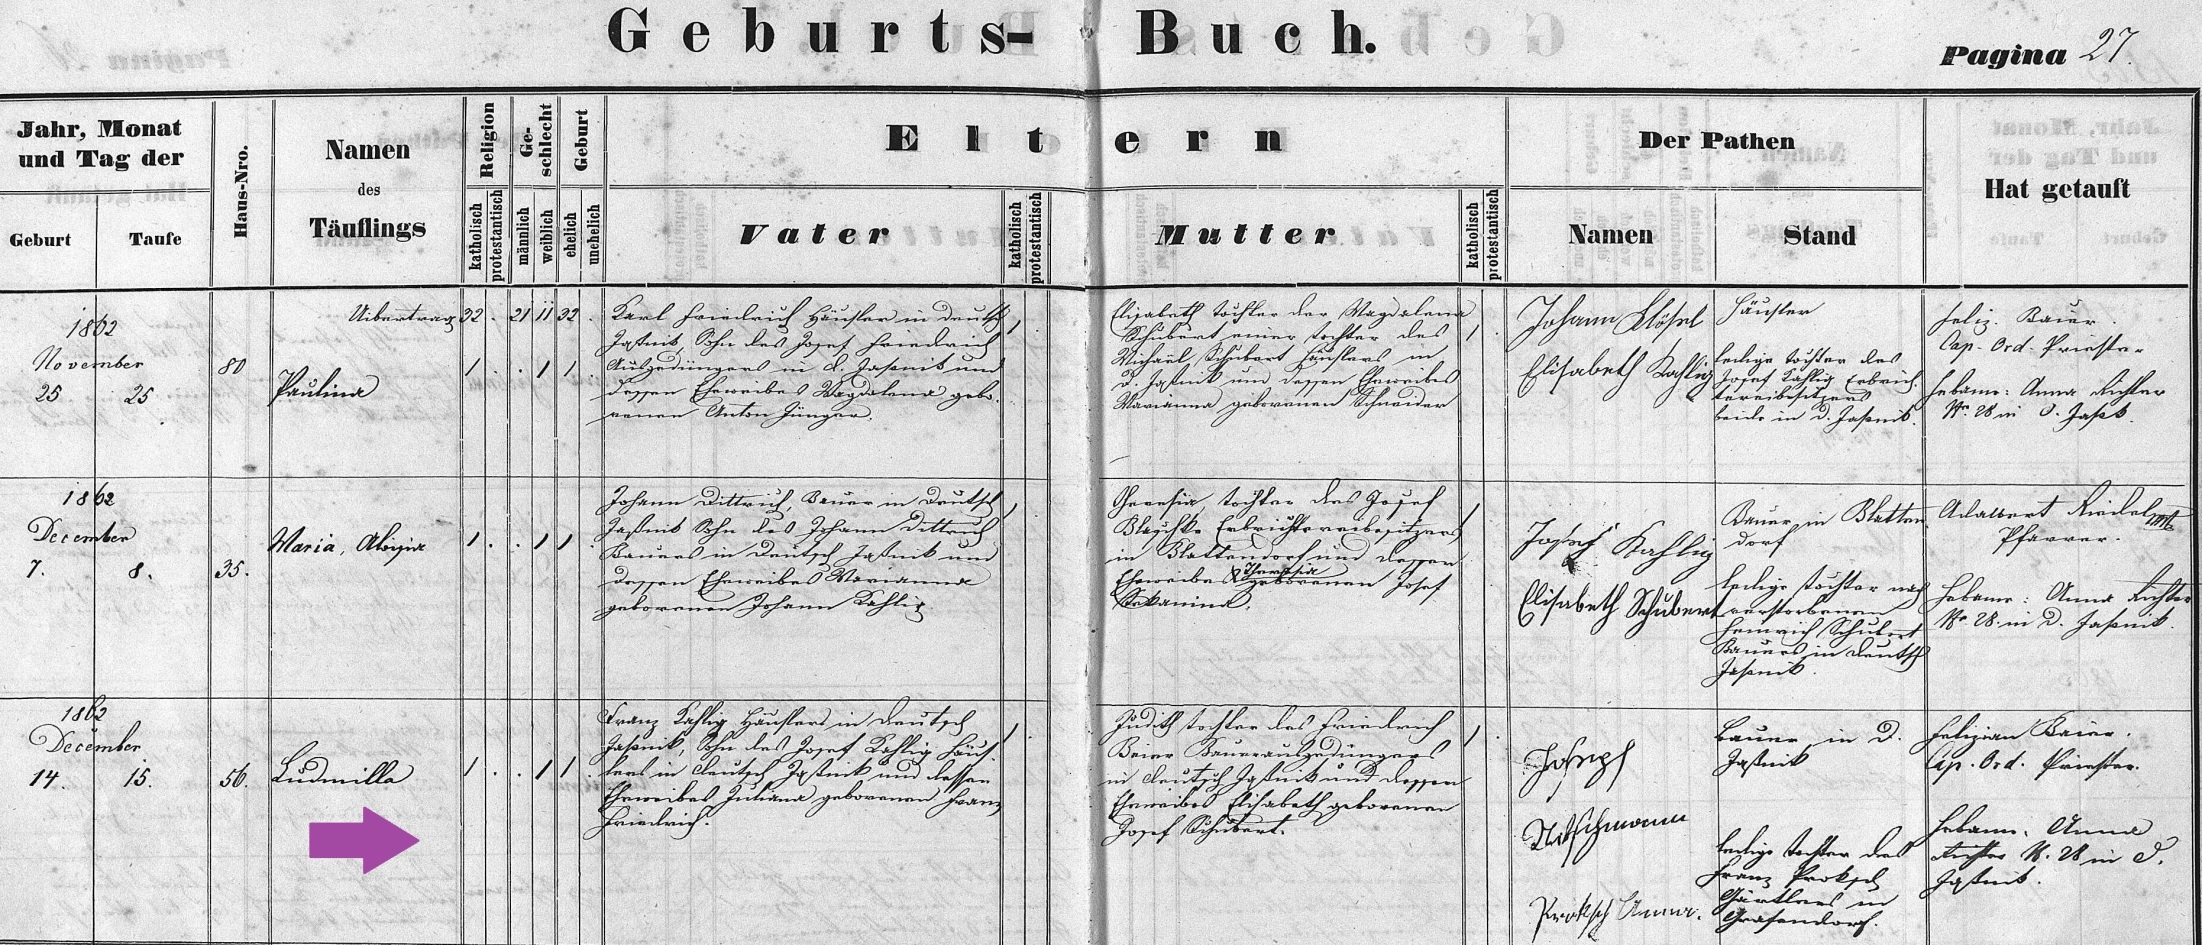 Geburts-Buch.
Pagina 27.
Jahr, Monat und Tag der
Geburt
Taufe
Haus-Nro.
Namen
des
Täuflings
Religion
katholisch
protestantisch
Ge-
schlecht
männlich
weiblich
Geburt
ehelich
unehelich
Eltern
Vater
katholisch
protestantisch
Mutter
katholisch
protestantisch
Der Pathen
Namen
Stand
Hat getauft
Uibertrag 32 . 21 11 32 .
1862
November
25 25
80
Paulina
1 . . 1 1 .
Karl Friedrich Häusler in Deutsch
Jaßnik, Sohn des Josef Friedrich
Auszedüngers in d. Jaßnik und
dessen Eheweibes Magdalena gebo-
renen Anton Jünger.
1
Elisabeth tochter der Magdalena
Schubert einer tochter des
Michael Schubert Häuslers in
D. Jaßnik und dessen Eheweibes
Marianna geborenen Schneider
1 .
Johann Klösel
Elisabeth Kahlig
Häusler
ledige tochter des
Josef Kahlig Erbrich-
tereibesitzers
beide in D. Jaßnik.
Feliz. Baier
Cap. Ord. Priester
Hebame: Anna Richter
Nr. 28 in D. Jaßk.
1862
December
7. 8.
35.
Maria, Aloisia
1 . . 1 1 .
Johann Dittrich, Bauer in Deutsch
Jaßnik Sohn des Johann Dittrich
Bauers in Deutsch Jaßnik und
dessen Eheweibes Marianna
geborenen Johann Kahlig
1
Theresia, tochter des Josef
Blaschke Erbrichtereibesitzers
in Blattendorf und dessen
Eheweibes Theresia geborenen Josef
1
Josef Kahlig
Elisabeth Schubert
Bauer in Blatten-
dorf
ledige tochter nach
verstorbenem
Heinrich Schubert
Bauers in Deutsch
Jaßnik.
Adalbert Riedel
Pfarrer.
Hebame: Anna Richter
Nr. 28. in D. Jaßnik.
1862
December
14. 15.
56.
Ludmilla
1 . . 1 1 .
Franz Kahlig Häuslers in Deutsch
Jaßnik, Sohn des Josef Kahlig Häus-
lers in Deutsch Jaßnik und dessen
Eheweibes Juliana geborenen Franz
Friedrich.
1
Judith tochter des Friedrich
Beier Bauerauszedüngers
in Deutsch Jaßnik und dessen
Eheweibes Elisabeth geborenen
Josef Schubert.
1 .
Joseph
Nitschmann
Proksch Anna.
Bauer in D.
Jaßnik
ledige tochter des
Franz Proksch
Gärtlers in
Grafendorf.
Felizian Baier.
Cap. Ord. Priester.
Hebam. Anna
Richter N. 28 in D.
Jaßnik.